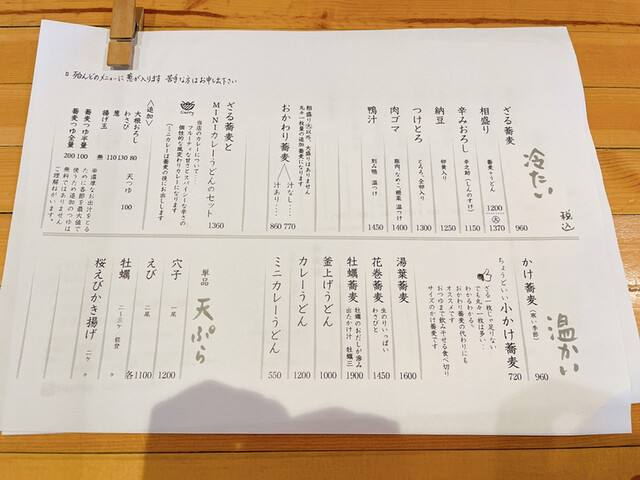 □ ほとんどのメニューに葱が入ります 苦手な方はお申し出下さい
冷たい
税込
ざる蕎麦 960
相盛り 蕎麦+うどん 1200 大 1370
辛みおろし 辛之助(しんのすけ) 1150
納豆 卵黄入り 1250
つけとろ とろろ、全卵入り 1300
肉ゴマ 豚肉 なめこ 糖菜 温つけ 1400
鴨汁 刻み鴨 温つけ 1450
相盛り大以外、大盛りはありません
丸々一枚量の追加蕎麦になります
おかわり蕎麦
汁なし… 770
汁あり… 860
ざる蕎麦と
MINIカレーうどんのセット 1360
当店のカレーについて
フルーティな甘さとスパイシーな辛さの
個性的な風変わりカレーになります
(ミニカレーは蕎麦の後にお出しします)
〈追加〉
大根おろし 80
わさび 130
葱 110
揚げ玉 無
天つゆ 100
蕎麦つゆ半量 100
蕎麦つゆ全量 200
※濃厚なお出汁をとる
ために各節を最大値で
使うため追加のつゆは
無料ではありません
ご理解ねがいます。
温かい
かけ蕎麦(寒い季節) 960
ちょうどいい 小かけ蕎麦 720
ざる一枚じゃ足りない
でも丸々一枚は多い…
わかるわかる、
おかわり蕎麦の代わりにも
オススメです
おつゆまで飲み干せる食べ切り
サイズのかけ蕎麦です
湯葉蕎麦 1600
花巻蕎麦 生のりいっぱい わさびと 1450
牡蠣蕎麦 牡蠣のおだしが滲み出たかけ汁 牡蠣三 1900
釜上げうどん 1000
カレーうどん 1200
ミニカレーうどん 550
単品 天ぷら
穴子 一尾 1200
えび 二尾 各1100
牡蠣 二~三ヶ 能登 〃
桜えびかき揚げ 二ヶ 〃